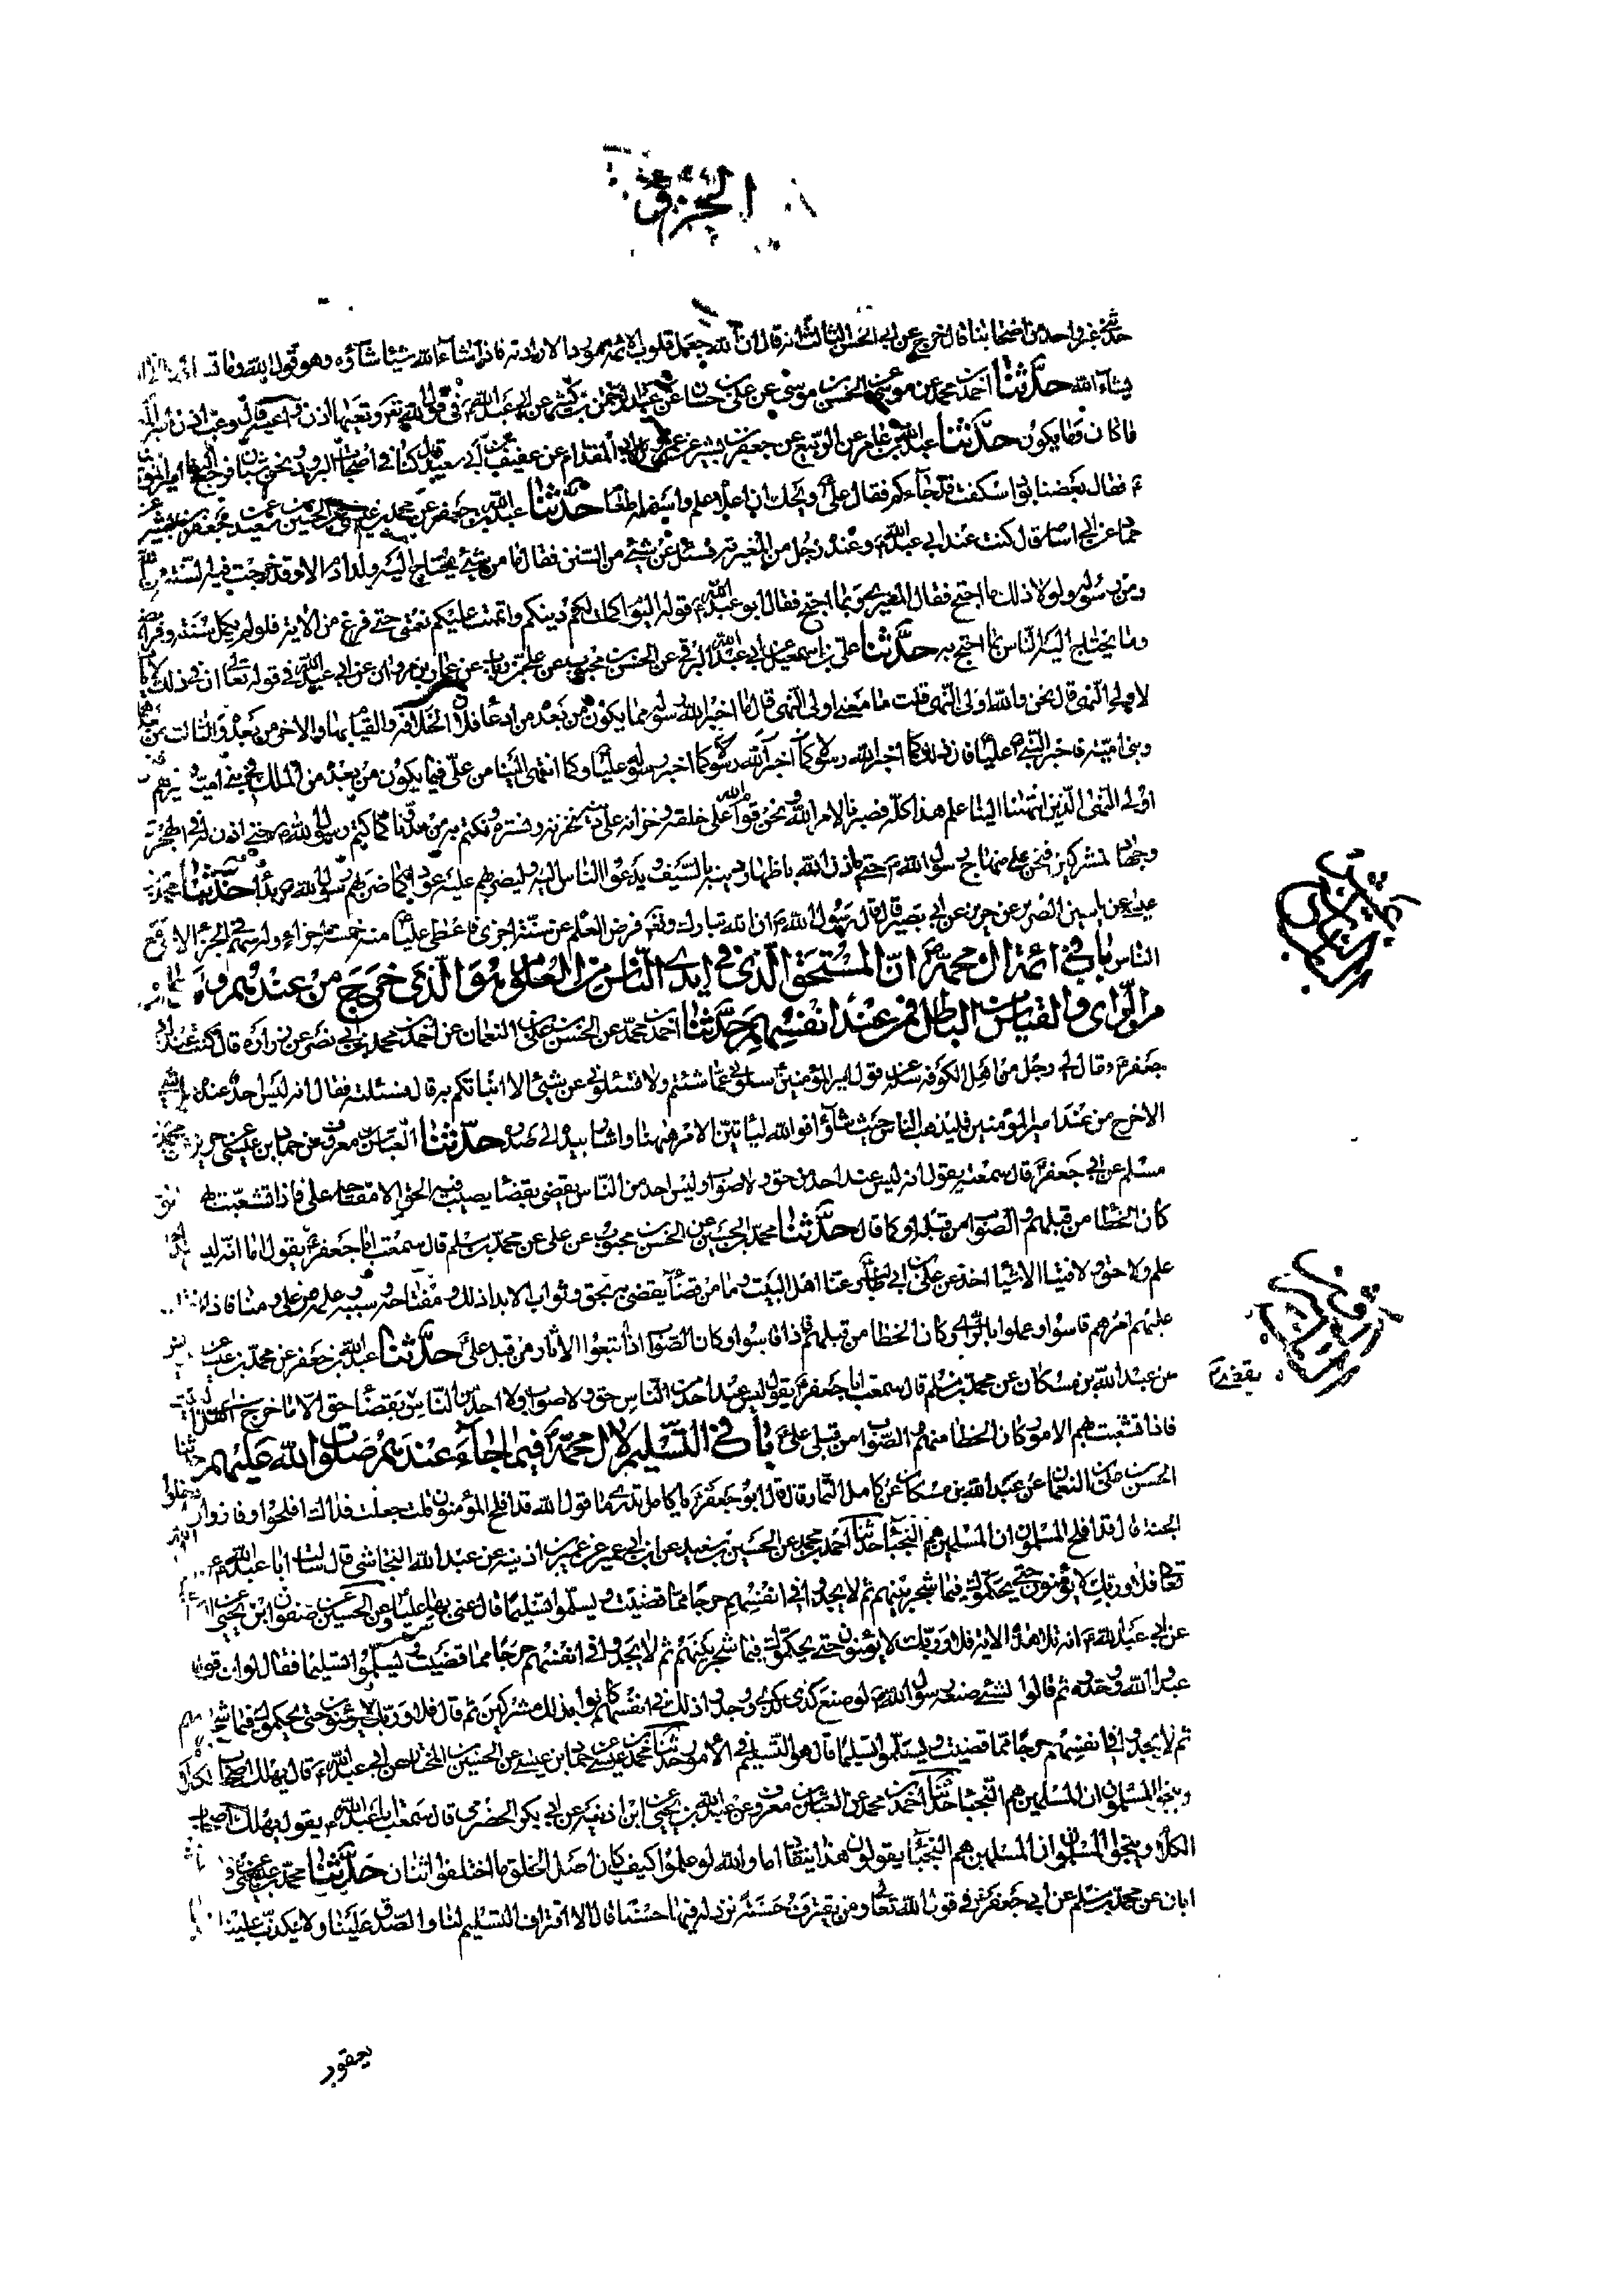 الجزء
حدثني غير واحد من اصحابنا قال خرج عن ابي الحسن الثالث انه قال ان الله جعل قلوب الائمة موردا لارادته فاذا شاء الله شيئا شاؤه وهو قول الله وما
يشاء الله حدثنا احمد بن محمد عن الحسن بن موسى عن علي بن حسان عن عبد الرحمن بن كثير عن ابي عبد الله في قول الله وتعيها اذن واعية قال وعت اذن
ما كان وما يكون حدثنا عبد الله بن عامر عن الربيع عن جعفر بن بشير عن عمرو بن ابي المقدام عن عفيف عن ابي سعيد قال كنا في اصحاب البرود ونحن شبان فرجع الينا امير المؤمنين
فقال بعضنا اسكفت قد جاءكم فقال علي ويحك ان اعلاه علم واسفله طعام حدثنا عبد الله بن جعفر عن محمد بن عيسى عن الحسين بن سعيد عن جعفر بن بشير عن
حماد عن ابي اسامة قال كنت عند ابي عبد الله وعنده رجل من المغيرية فسئله عن شيء من السنن فقال ما من شيء يحتاج اليه ولد ادم الا وقد خرجت فيه السنة من الله
ومن رسوله ولولا ذلك ما احتج فقال المغيري وبما احتج فقال ابو عبد الله قوله اليوم اكملت لكم دينكم واتممت عليكم نعمتي حتى فرغ من الاية فلو لم يكمل سنته وفرايضه
وما يحتاج اليه الناس ما احتج به حدثنا علي بن اسمعيل عن ابي عبد الله البرقي عن الحسن بن محبوب عن علي بن رياب عن عمار بن مروان عن ابي عبد الله في قوله تعالى ان في ذلك لايات
لاولي النهى قال نحن والله اولى النهى قلت ما معنى اولى النهى قال ما اخبر الله رسوله مما يكون من بعده من ادعا فلان الخلافة والقيام بها والاخر من بعده والثالث من بعدهما
وبني امية فاخبر النبي عليا فكان ذلك كما اخبر الله رسوله وكما اخبر رسوله عليا وكما انتهى الينا من علي فيما يكون من بعده من الملك في بني امية وغيرهم
اولى النهى الذين انتهى الينا علم هذا كله فصبرنا لامر الله ونحن قوام الله على خلقه وخزانه على دينه نخزنه ونستره ونكتتم به من عدونا كما كتم رسول الله حتى اذن له في الهجرة
وجهاد المشركين فنحن على منهاج رسول الله حتى ياذن الله باظهار دينه بالسيف ويدعوا الناس اليه وليضربهم عليه عودا كما ضربهم رسول الله بدءا حدثنا محمد بن
عيسى عن ياسين الضرير عن حريز عن ابي بصير قال قال رسول الله ان الله تبارك وتعالى فرض العلم عن ستة اجزاء فاعطى عليا منه خمسة اجزاء وله سهم في الجزء الاخر مع
الناس باب في ائمة ال محمد ان المستحق الذي في ايدي الناس من العلوم هو الذي خرج من عندهم وما
من الراي والقياس الباطل فمن عند انفسهم حدثنا احمد بن محمد عن الحسن بن علي بن النعمان عن احمد بن محمد بن ابي نصر عن زرارة قال كنت عند ابي
جعفر وقال لي رجل من اهل الكوفة سله عن قول امير المؤمنين سلوني عما شئتم ولا تسئلوني عن شيء الا انباتكم به قال فسئلته فقال انه ليس احد عنده
الا خرج من عند امير المؤمنين فليذهب الناس حيث شاؤا فوالله ليأتين الامر من ههنا واشار بيده الى صدره حدثنا العباس بن معروف عن حماد بن عيسى عن حريز عن محمد بن
مسلم عن ابي جعفر قال سمعته يقول انه ليس عند احد من حق ولا صواب وليس احد من الناس يقضي بقضاء يصيب فيه الحق الا مفتاحه علي فاذا تشعبت بهم
كان الخطا من قبلهم والصواب من قبله او كما قال حدثنا محمد بن الحسين عن الحسن بن محبوب عن علي عن محمد بن مسلم قال سمعت ابا جعفر يقول اما انه ليس
علم ولا حق ولا فتيا الا شيئا اخذ عن علي بن ابي طالب عنا اهل البيت وما من قضاء يقضى به بحق وثواب الا بدأ ذلك ومفتاحه وسببه وعلمه من علي ومنا فاذا
عليهم امرهم قاسوا وعملوا بالراي وكان الخطا من قبلهم اذا قاسوا وكان الصواب اذا اتبعوا الاثار من قبل علي حدثنا عبد الله بن جعفر عن محمد بن عيسى
عن عبد الله بن مسكان عن محمد بن مسلم قال سمعت ابا جعفر يقول ليس عند احد من الناس حق ولا صواب ولا احد من الناس يقضى بقضاء حق الا ما خرج منا اهل البيت
فاذا تشعبت بهم الامور كان الخطا منهم والصواب من قبل علي باب في التسليم لال محمد فيما جاء عندهم صلوات الله عليهم حدثنا
الحسن بن علي بن النعمان عن عبد الله بن مسكان عن كامل التمار قال قال ابو جعفر يا كامل تدري ما قول الله قد افلح المؤمنون قلت جعلت فداك افلحوا وفازوا
الجنة قال قد افلح المسلمون ان المسلمين هم النجباء حدثنا احمد بن محمد عن الحسين بن سعيد عن ابن ابي عمير عن عمر بن اذينة عن عبد الله النجاشي قال قال ابا عبد الله
تعالى فلا وربك لا يؤمنون حتى يحكموك فيما شجر بينهم ثم لا يجدوا في انفسهم حرجا مما قضيت ويسلموا تسليما قال عنى بها عليا وعن الحسين عن صفوان بن يحيى عن
عن ابي عبد الله انه تلا هذه الاية فلا وربك لا يؤمنون حتى يحكموك فيما شجر بينهم ثم لا يجدوا في انفسهم حرجا مما قضيت ويسلموا تسليما فقال لو ان قوما
عبدوا الله وحده ثم قالوا لشيء صنعه رسول الله لو صنع كذا وكذا او وجدوا ذلك في انفسهم كانوا بذلك مشركين ثم قال فلا وربك لا يؤمنون حتى يحكموك فيما شجر بينهم
ثم لا يجدوا في انفسهم حرجا مما قضيت ويسلموا تسليما قال هو التسليم في الامور حدثنا محمد بن عيسى عن حماد بن عيسى عن الحسين بن المختار عن ابي عبد الله قال يهلك اصحاب الكلام
وينجو المسلمون ان المسلمين هم النجباء حدثنا احمد بن محمد عن العباس بن معروف عن عبد الله بن يحيى عن ابن اذينة عن ابي بكر الحضرمي قال سمعت ابا عبد الله يقول يهلك اصحاب
الكلام وينجو المسلمون ان المسلمين هم النجباء يقولون هذا ينقاد اما والله لو علموا كيف كان اصل الخلق ما اختلف اثنان حدثنا محمد بن عيسى عن
ابان عن محمد بن مسلم عن ابي جعفر في قول الله تعالى ومن يقترف حسنة نزد له فيها حسنا قال الاقتراف التسليم لنا والصدق علينا ولا يكذب علينا
يعقوب